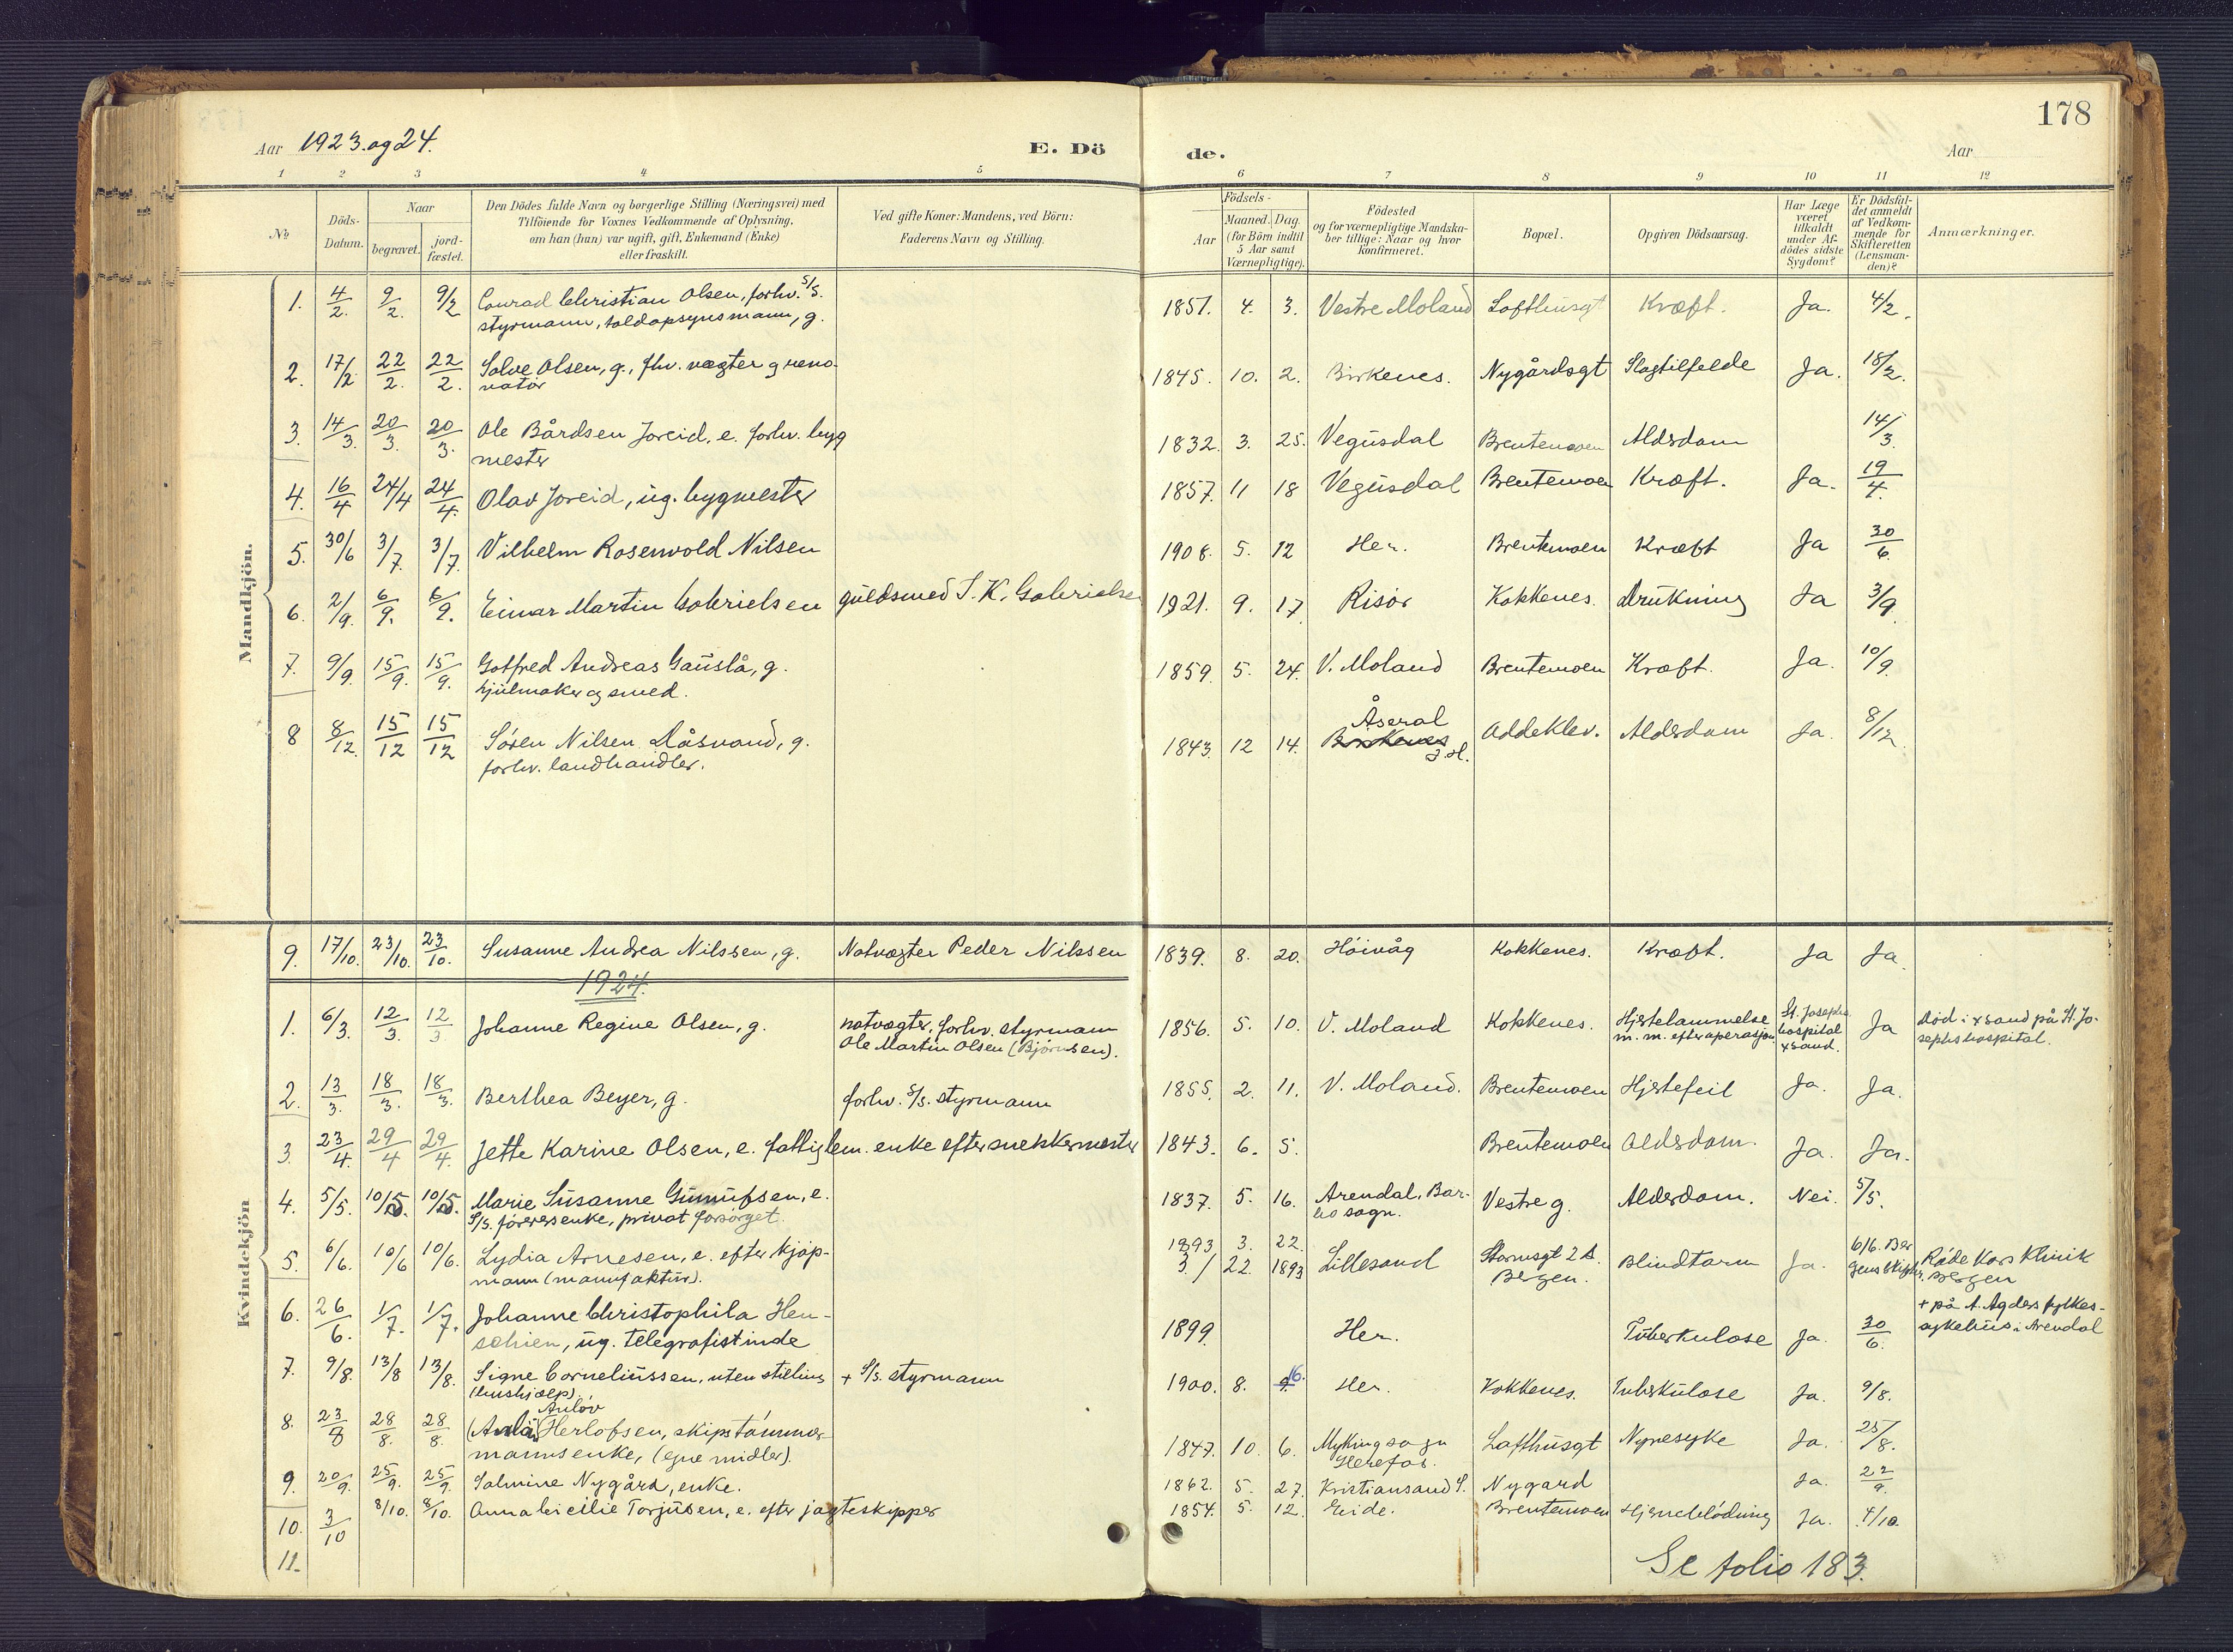 178
Aar 1923. og 24.
E. Dö de.
Aar
1 2 3 4 5 6 7 8 9 10 11 12
№
Döds-Datum.
Naar
begravet.
jord-fæstet.
Den Dödes fulde Navn og borgerlige Stilling (Næringsvei) med
Tilföiende for Voxnes Vedkommende af Oplysning,
om han (hun) var ugift, gift, Enkemand (Enke)
eller fraskilt.
Ved gifte Koner: Mandens, ved Börn:
Faderens Navn og Stilling.
Födsels-
Aar
Maaned. Dag.
(for Börn indtil
5 Aar samt
Værnepligtige).
Födested
og for værnepligtige Mandska-
ber tillige: Naar og hvor
konfirmeret.
Bopæl.
Opgiven Dödsaarsag.
Har Læge
været
tilkaldt
under Af-
dödes sidste
Sygdom?
Er Dödsfal-
det anmeldt
af Vedkom-
mende for
Skifteretten
(Lensman-
den)?
Anmærkninger.
Mandkjön.
1. 4/2. 9/2. 9/2 Conrad Christian Olsen, forhv. S/S. 1851. 4. 3. Vestre Moland Lofthusgt Kræft. Ja. 4/2.
styrmann, toldopsynsmann, g.
2. 17/2 22/2. 22/2. Salve Olsen, g., fhv. vægter g reno- 1845. 10. 2. Birkenes. Nygårdsgt Slagtilfelde Ja. 18/2.
vatör
3. 14/3. 20/3. 20/3. Ole Bårdsen Joreid, e. forhv. byg 1832. 3. 25. Vegusdal Brentemoen Aldsdom 14/3.
mester
4. 16/4 24/4 24/4. Olav Joreid, ug. bygmester 1857. 11 18 Vegusdal Brentemoen Kræft. Ja. 19/4.
5. 30/6 3/7. 3/7. Vilhelm Rosenvold Nilsen 1908. 5. 12 Her. Brentemoen Kræft Ja 30/6.
6. 2/9. 6/9. 6/9. Einar Martin Gabrielsen guldsmed S. K. Gabrielsen 1921. 9. 17. Risör Kokkenes. Drukning Ja 3/9.
7. 9/9. 15/9. 15/9. Gotfred Andreas Gauslå, g. 1859. 5. 24. V. Moland Brentemoen Kræft. Ja. 10/9.
hjulmaker og smed.
8 8/12. 15/12 15/12 Sören Nilsen Låsvand, g. 1843. 12 14. Åseral Birkenes J. H. Oddeklev. Alderdom Ja. 8/12.
forhv. landhandler.
Kvindekjön
9. 17/10. 23/10. 23/10. Susanne Andrea Nilssen, g. Natvægter Peder Nilssen 1839. 8. 20. Höivåg Kokkenes. Kræft. Ja Ja.
1924.
1. 6/3. 12/3. 12/3. Johanne Regine Olsen, g. natvægter, forhv. styrmann 1856. 5. 10. V. Moland Kokkenes. Hjertelammelse St. Josephs Ja Död i xsand på St. Jo-
Ole Martin Olsen (Björnsen). m. m. efter operasjon hospital xsand. sephs hospital.
2. 13/3. 18/3. 18/3. Berthea Beyer, g. forhv. S/S. styrmann 1855. 2. 11. V. Moland. Brentemoen Hjertefeil Ja. Ja.
3. 23/4. 29/4 29/4. Jette Karine Olsen, e. fattiglem. enke efter snekkermester 1843. 6. 5. Brentemoen Aldersdom. Ja. Ja.
4. 5/5. 10/5. 10/5. Marie Susanne Gunnufsen, e. 1837. 5. 16. Arendal, Bar- Vestre g. Alderdom. Nei. 5/5.
S/S. förersenke, privat forsörget. bo sogn.
5. 6/6. 10/6 10/6. Lydia Arnesen, e. efter kjöp- 1893. 3. 22. 3/ 22. 1893 Lillesand Bergen. Blindtarm Ja. 6/6. Röde Kors Klinik
mann (manufaktur). Bergen
6. 26/6. 1/7. 1/7. Johanne Christophila Hen- 1899. Her. Tuberkulose Ja. 30/6. + på A. Agders fylkes-
schien, ug. telegrafistinde sykehus i Arendal
7. 9/8. 13/8 13/8. Signe Corneliussen, uten stilling + S/S. styrmann 1900. 8. 16. Her. Kokkenes. Tuberkulose Ja. 9/8.
(hushjælp).
8. 23/8 28/8. 28/8. Anlöv Herlofsen, skipstömmer- 1847. 10. 6. Mykingsogn Lofthusgt Nyresyke Ja. 25/8.
mannsenke, (egne midler). Herefos.
9. 20/9. 25/9. 25/9. Salmine Nygård, enke. 1862. 5. 27. Kristiansand S. Nygard Ja. 22/9.
10. 3/10 8/10. 8/10. Anna Cicilie Torjusen, e. efter jagteskipper 1854. 5. 12. Eide. Brentemoen Hjerneblödning Ja. 4/10.
11.
Se folio 183.